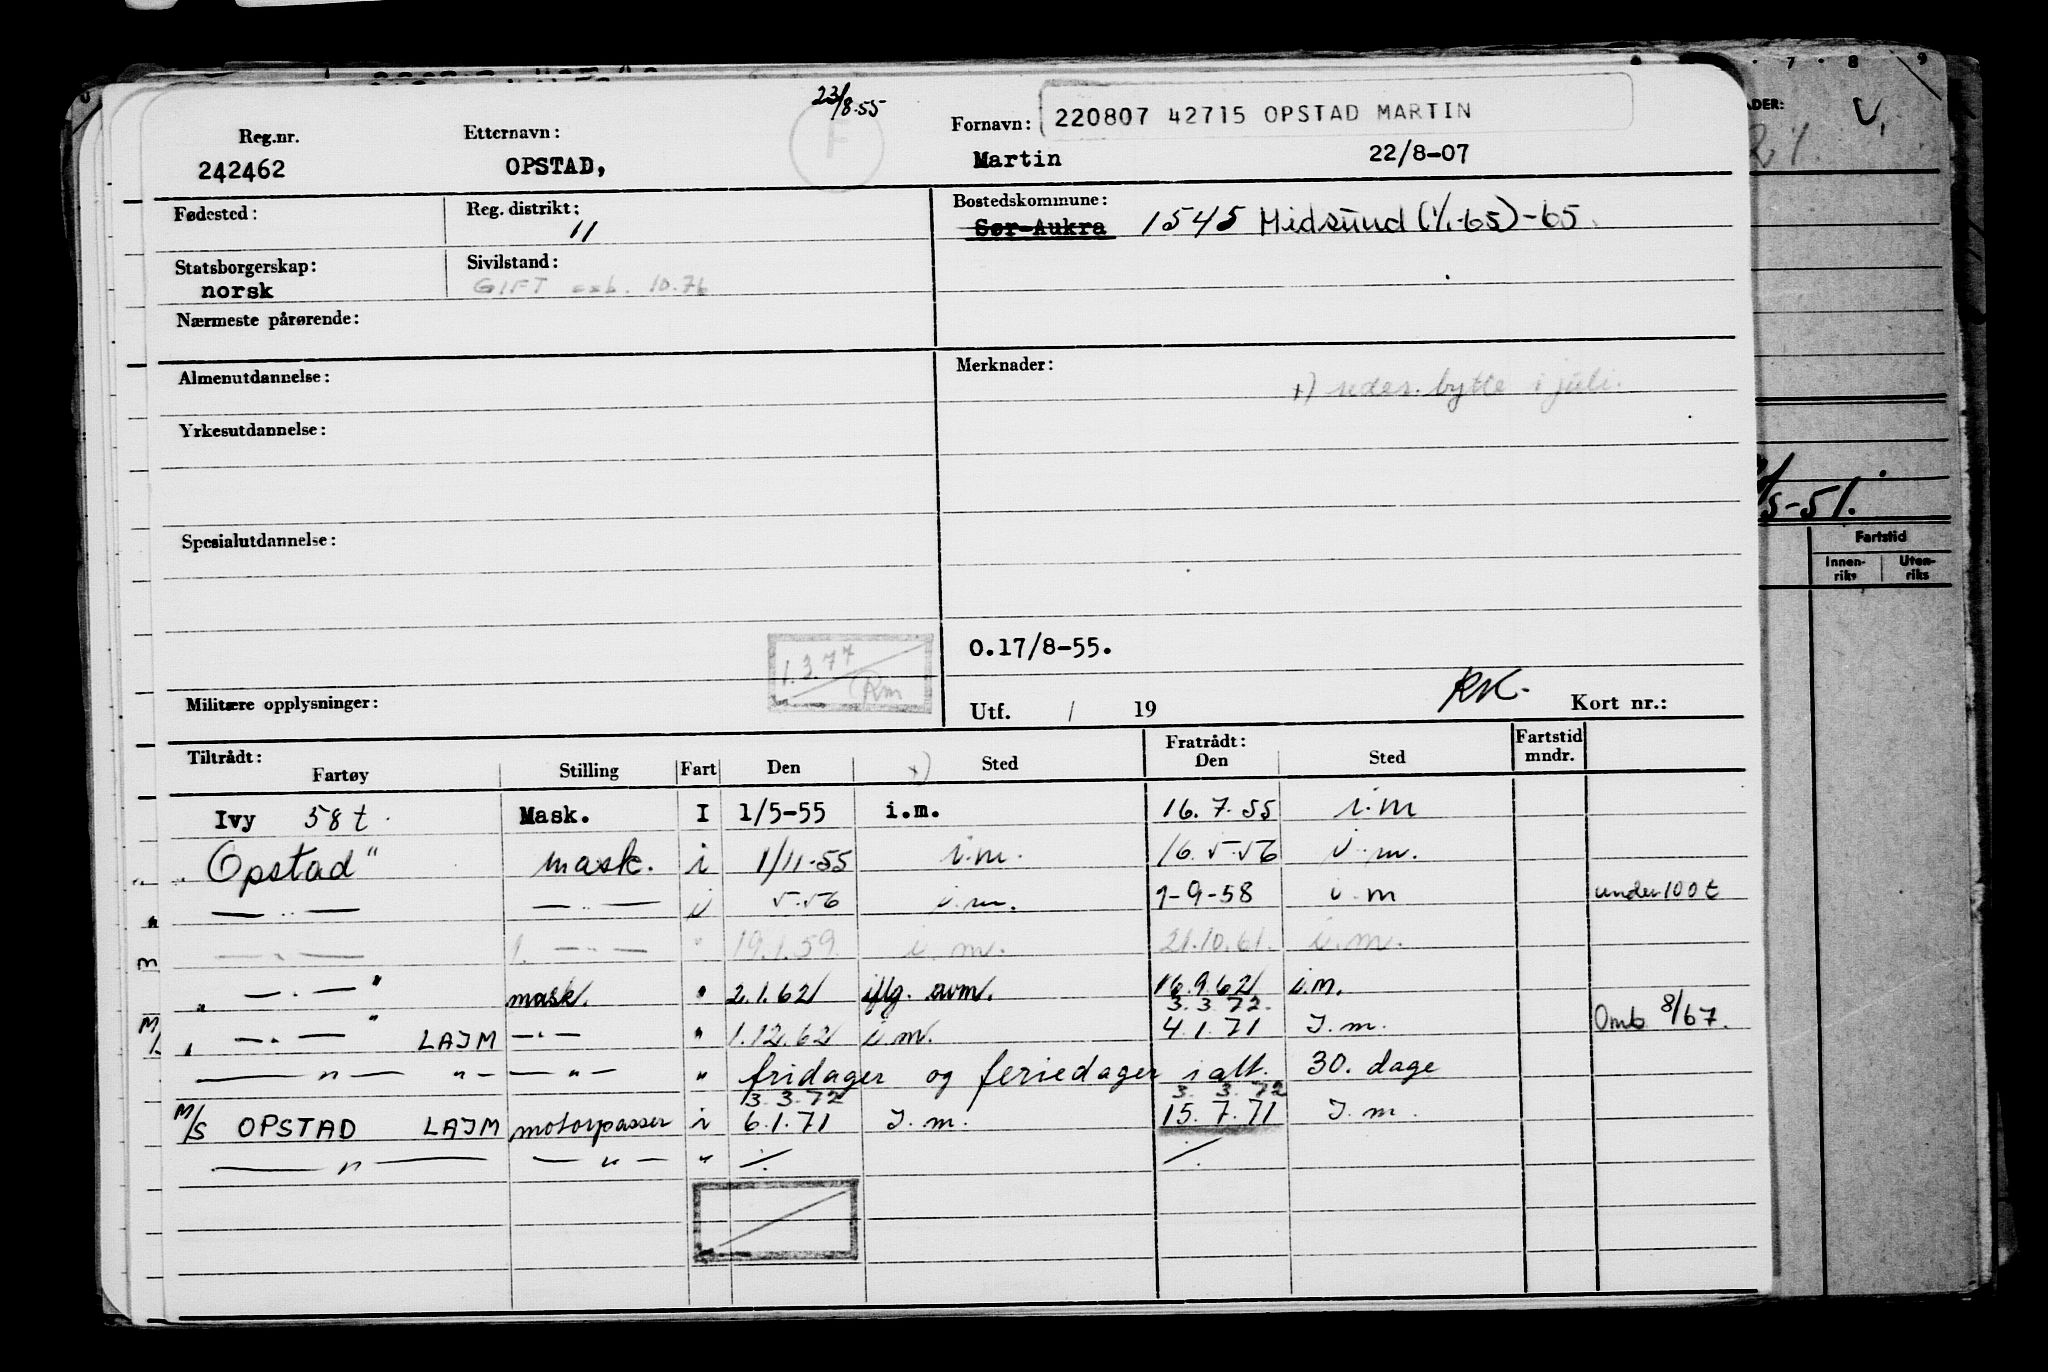 23/8-55
220807 42715 OPSTAD MARTIN
Reg.nr. Etternavn: Fornavn:
242462 OPSTAD, Martin 22/8-07
Fødested: Reg. distrikt: Bostedskommune:
11 Sør-Aukra 1545 Midsund (1/1-65)-65.
Statsborgerskap: Sivilstand:
norsk GIFT 10.76
Nærmeste pårørende:
Almenutdannelse: Merknader:
x) uder. bytte i juli.
Yrkesutdannelse:
Spesialutdannelse:
O.17/8-55.
1.3.77
Rm
Militære opplysninger: Utf. / 19 KK. Kort nr.:
Tiltrådt: Fratrådt: Fartstid
Fartøy Stilling Fart Den x) Sted Den Sted mndr.
Ivy 58 t. Mask. I 1/5-55 i.m. 16.7.55 i.m
" Opstad" mask. i 1/11-55 i.m. 16.5.56 i.m.
— " — — " — i 5.56 i.m. 1-9-58 i.m under 100 t
— " — 1. — " — " 19.1.59 i.m. 21.10.61. i.m.
" — " — " mask. " 2.1.62 iflg. avm. 16.9.62 i.m.
3.3.72.
M/ " — " — " LAJM — " — " 1.12.62 i.m. 4.1.71 I.m. Omb 8/67.
— " — " — — " — " fridager og feriedager i alt. 30. dage
3.3.72 3.3.72
M/S OPSTAD LAJM motorpasser i 6.1.71 I.m. 15.7.71 I.m.
— " — — " — " ·/· ·/·
7 8 9
ADER:
/5-51.
Fartstid
Innen-riks Uten-riks